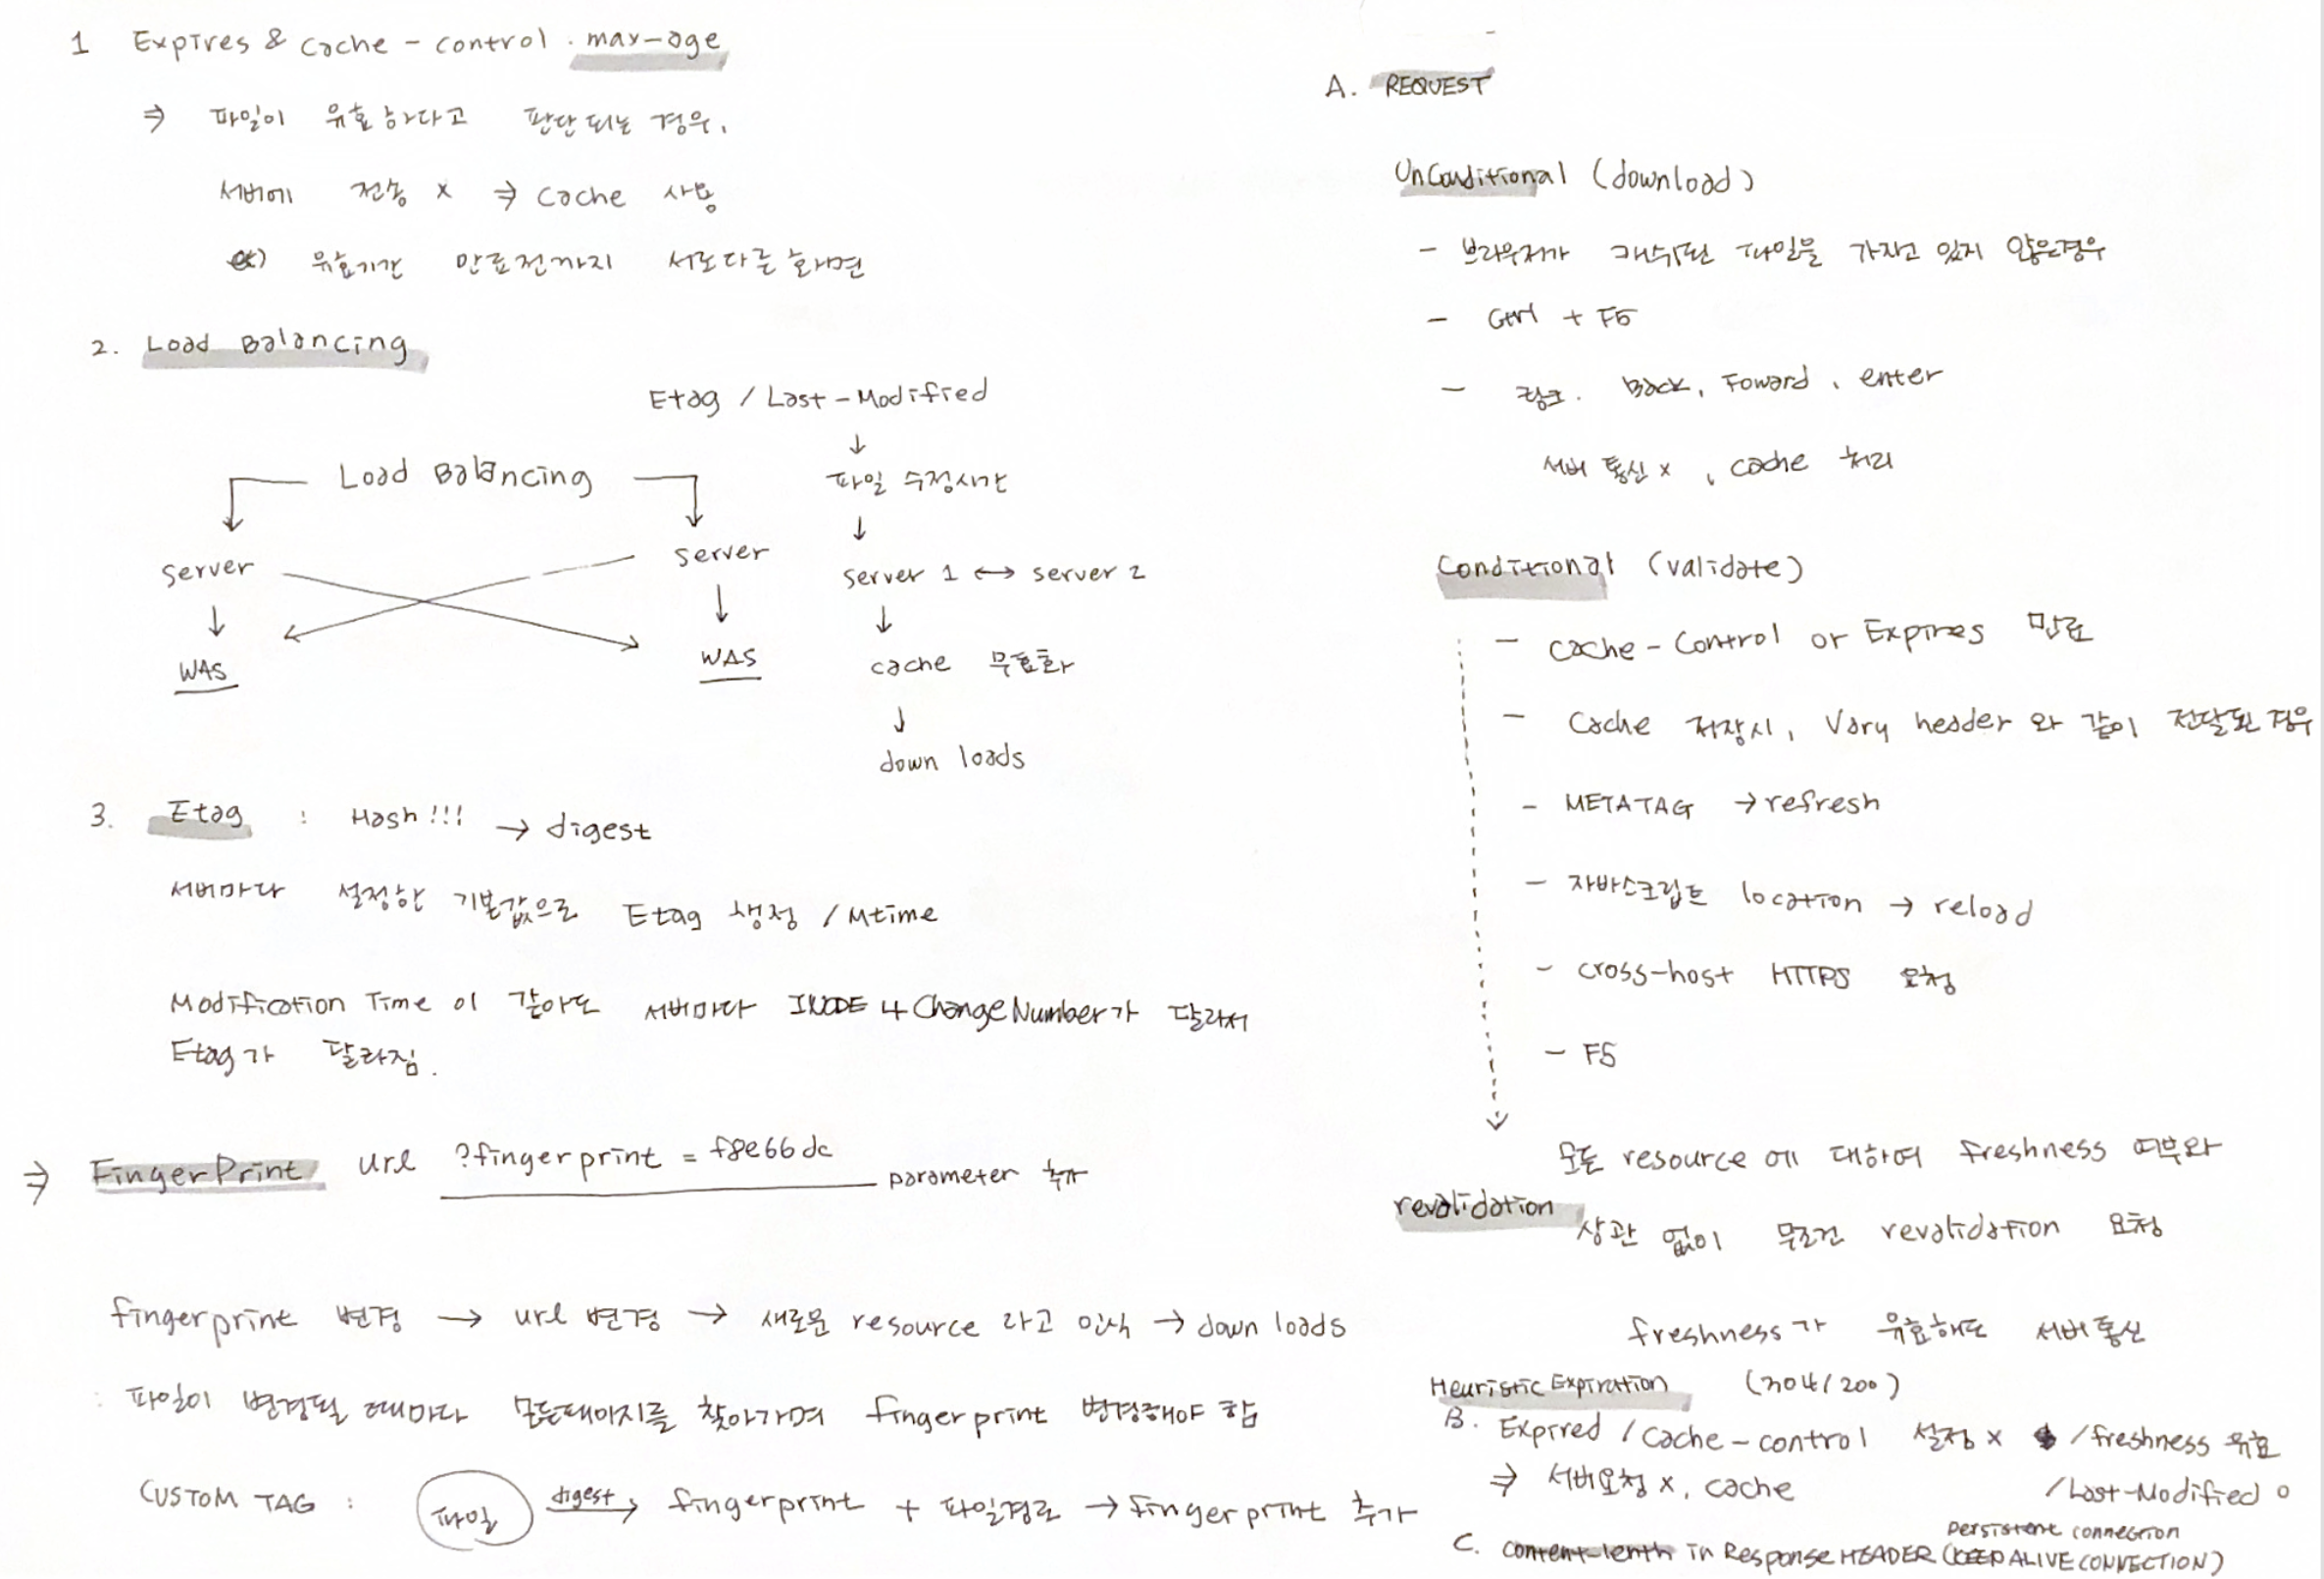 1 Expires & Cache-control. max-age
⇒ 파일이 유효하다고 판단되는 경우,
서버에 전송 x ⇒ Cache 사용
ex) 유효기간 만료전까지 서로다른화면
2. Load Balancing
Etag / Last-Modified
↓
파일 수정시간
↓
server 1 ↔ server 2
↓
cache 무효화
↓
down loads
Load Balancing
Server
server
↓
↓
WAS
WAS
3. Etag : Hash!!! → digest
서버마다 설정한 기본값으로 Etag 생성 / Mtime
Modification Time 이 같아도 서버마다 INODE 나 Change Number가 달라서
Etag가 달라짐.
⇒ FingerPrint url ?fingerprint = f8e66dc parameter 추가
fingerprint 변경 → url 변경 → 새로운 resource 라고 인식 → down loads
: 파일이 변경될 때마다 모든페이지를 찾아가며 fingerprint 변경해야 함
CUSTOM TAG : 파일 digest → fingerprint + 파일경로 → fingerprint 추가
A. REQUEST
UnConditional (download)
- 브라우저가 캐쉬된 파일을 가지고 있지 않은경우
- Ctrl + F5
- 링크. Back, Foward, enter
서버 통신 x, cache 처리
Conditional (validate)
- Cache-Control or Expires 만료
- Cache 저장시, Vary header 와 같이 전달된 경우
- METATAG → refresh
- 자바스크립트 location → reload
- cross-host HTTPS 요청
- F5
모든 resource 에 대하여 freshness 여부와
revalidation 상관 없이 무조건 revalidation 요청
freshness가 유효해도 서버통신
Heuristic Expiration (304/200)
B. Expired / Cache-control 설정 x / freshness 유효
⇒ 서버요청 x, cache / Last-Modified o
persistent connection
C. content-lenth in Response HEADER (KEEP ALIVE CONNECTION)